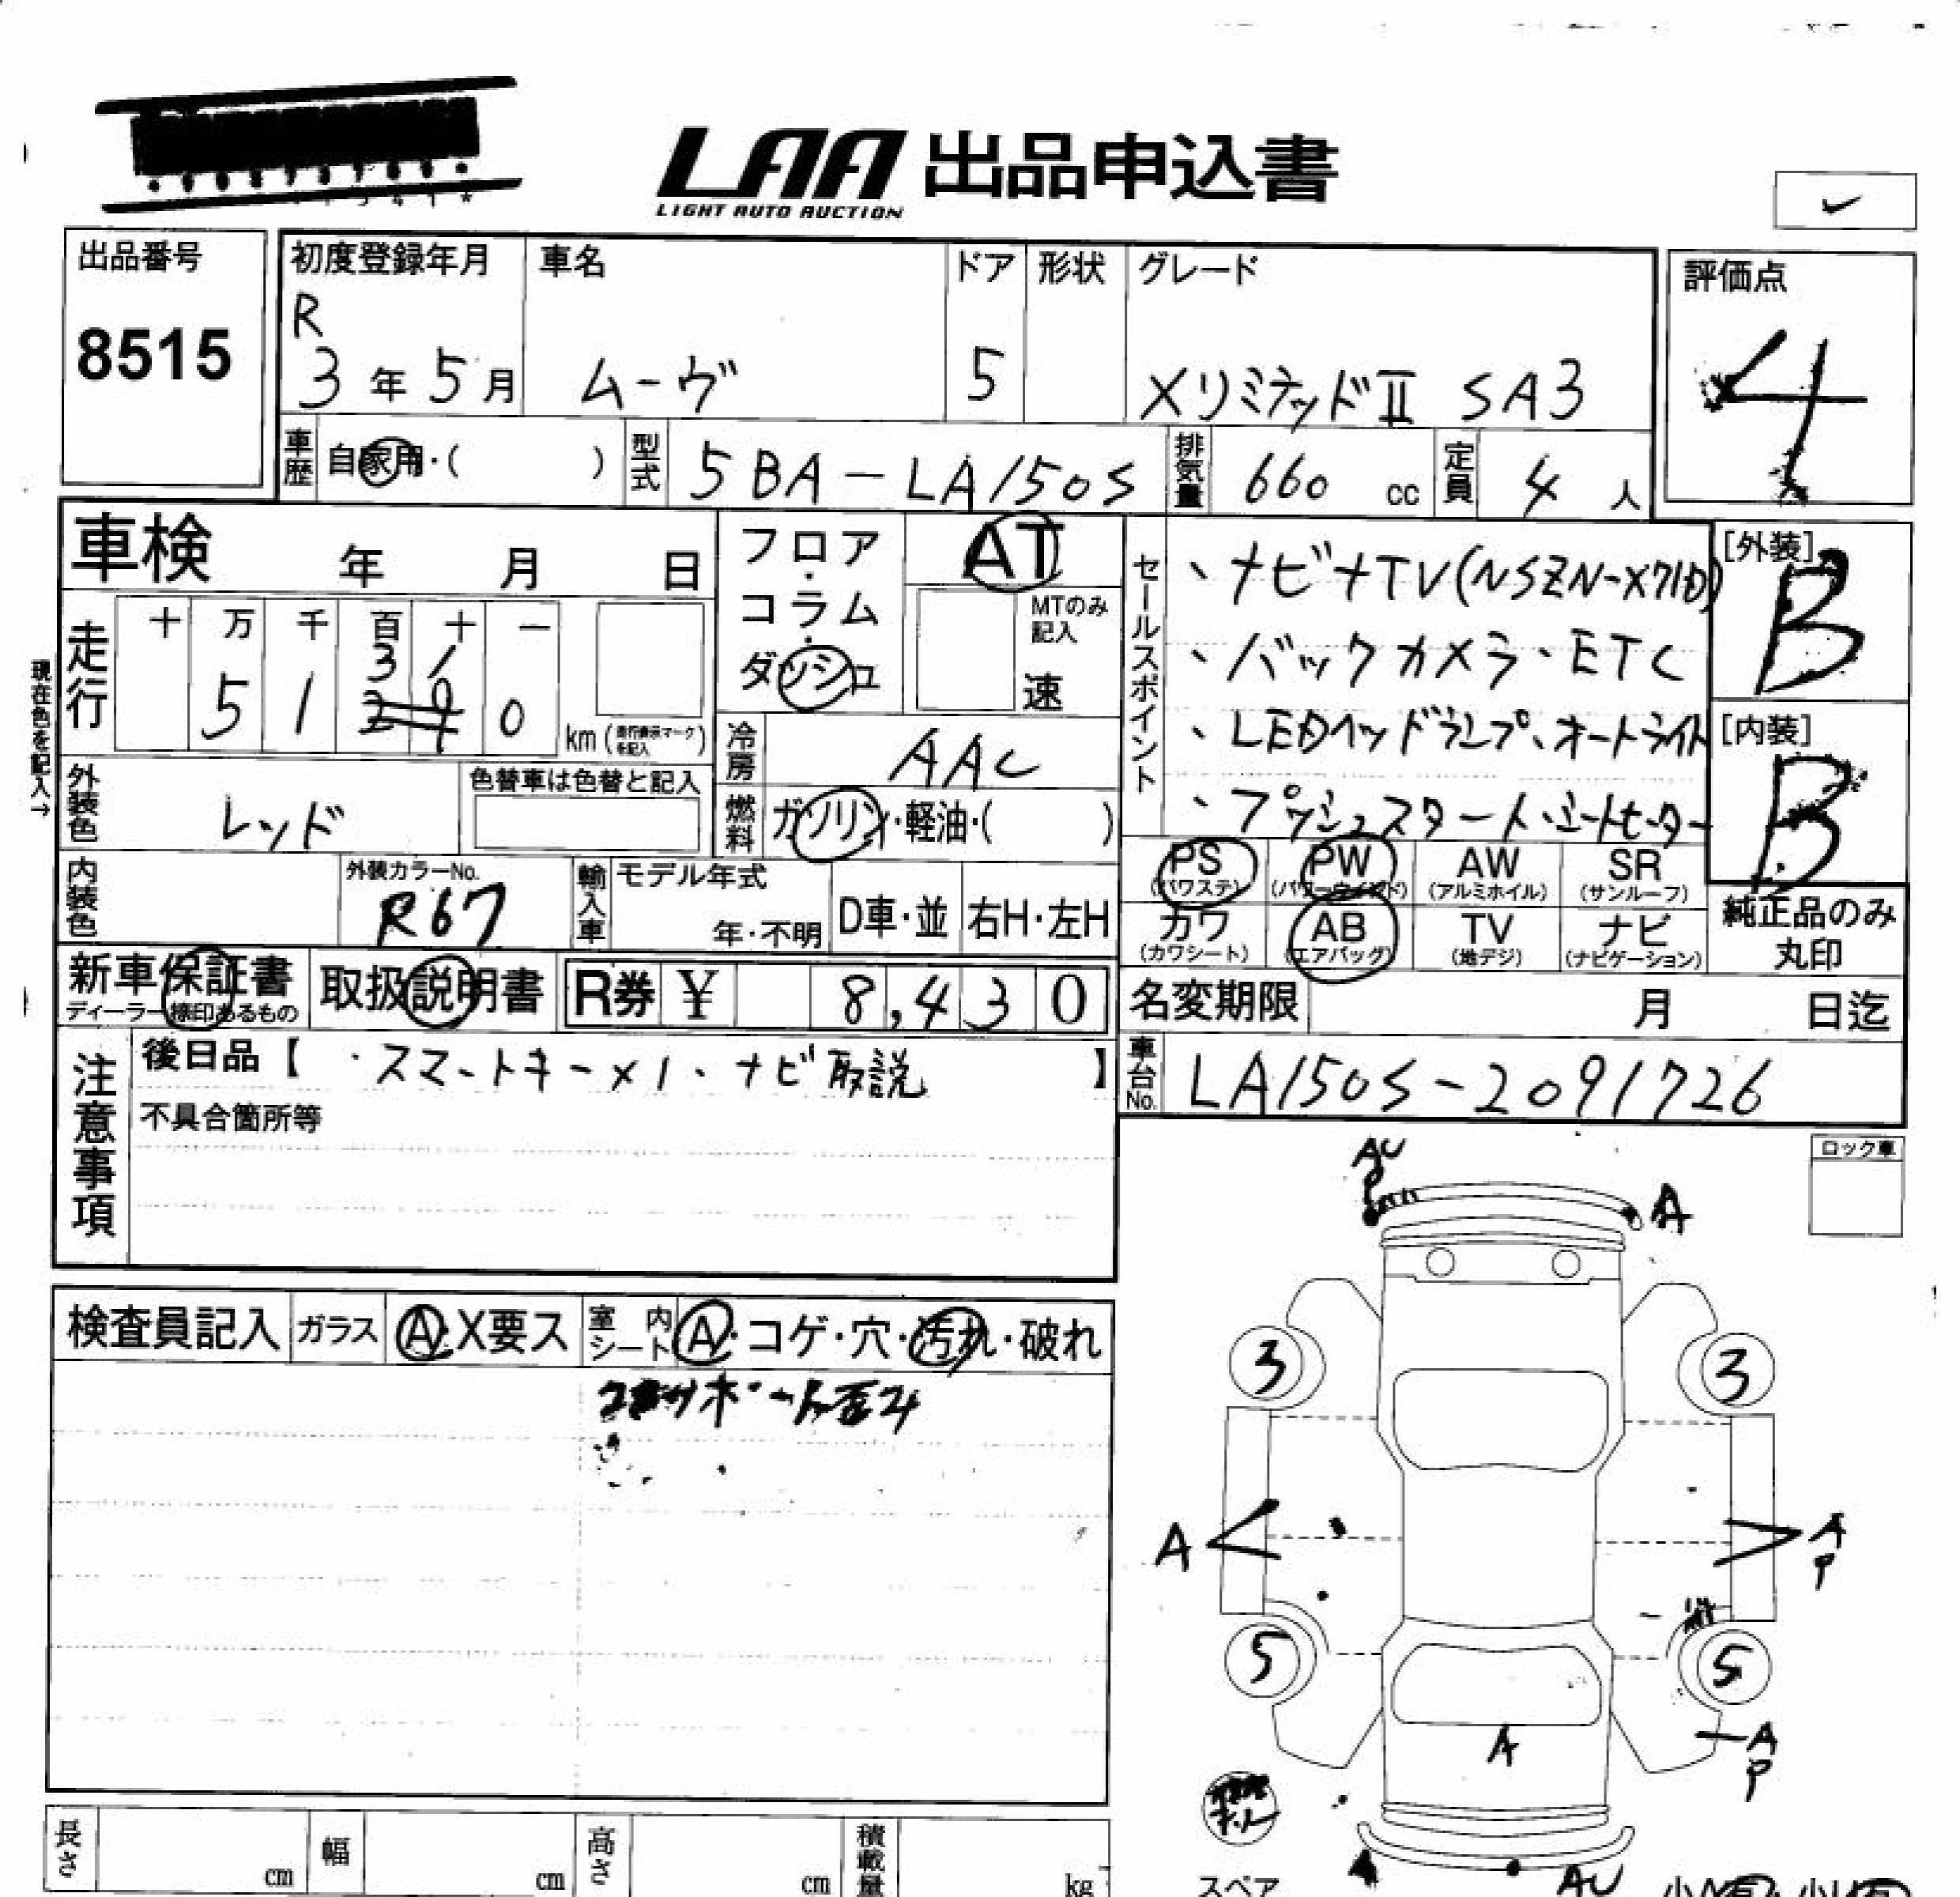 LAA 出品申込書
LIGHT AUTO AUCTION
出品番号
8515
初度登録年月
R
3年5月
車名
ムーヴ
ドア
5
形状
グレード
XリミテッドⅡ SA3
評価点
4
車歴 自家用・( )
型式 5BA-LA150S
排気量 660 cc
定員 4 人
車検 年 月 日
フロア・コラム・ダッシュ
AT
MTのみ記入
速
セールスポイント
、ナビ+TV(NSZN-X71D)
、バックカメラ、ETC
、LEDヘッドランプ、オートライト
、プッシュスタート、シートヒーター
[外装]
B
[内装]
B
現在色を記入→
走行 十 万 千 百 十 一
3 1
5 1 2 9 0
km(走行表示マークを記入)
冷房 AAC
外装色 レッド
色替車は色替と記入
燃料 ガソリン・軽油・( )
内装色
外装カラーNo.
R67
輸入車 モデル年式
年・不明
D車・並
右H・左H
PS
(パワステ)
PW
(パワーウインド)
AW
(アルミホイル)
SR
(サンルーフ)
カワ
(カワシート)
AB
(エアバッグ)
TV
(地デジ)
ナビ
(ナビゲーション)
純正品のみ
丸印
新車保証書
ディーラー捺印あるもの
取扱説明書
R券 ¥ 8,430
名変期限 月 日迄
注意事項
後日品【 ・スマートキー×1、ナビ取説 】
不具合箇所等
車台No. LA150S-2091726
ロック車
AU
P
A
検査員記入
ガラス A・X要ス
室内シート A・コゲ・穴・汚れ・破れ
サポート歪み
3
3
A
A
P
5
5
A
A
P
長さ cm
幅 cm
高さ cm
積載量 kg
スペア
AU